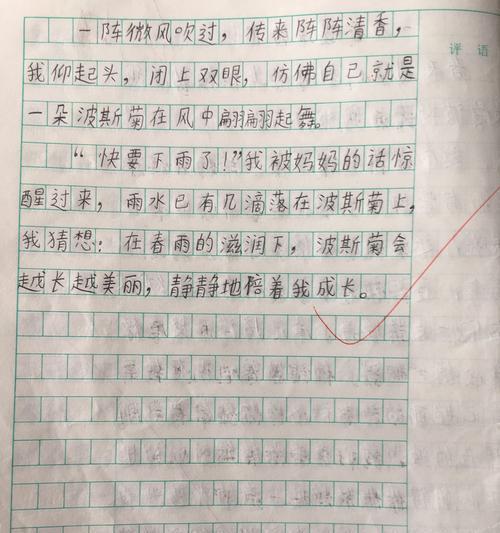 评语
一阵微风吹过，传来阵阵清香，
我仰起头，闭上双眼，仿佛自己就是
一朵波斯菊在风中翩翩起舞。
“快要下雨了！”我被妈妈的话惊
醒过来，雨水已有几滴落在波斯菊上，
我猜想：在春雨的滋润下，波斯菊会
越长越美丽，静静地陪着我成长。